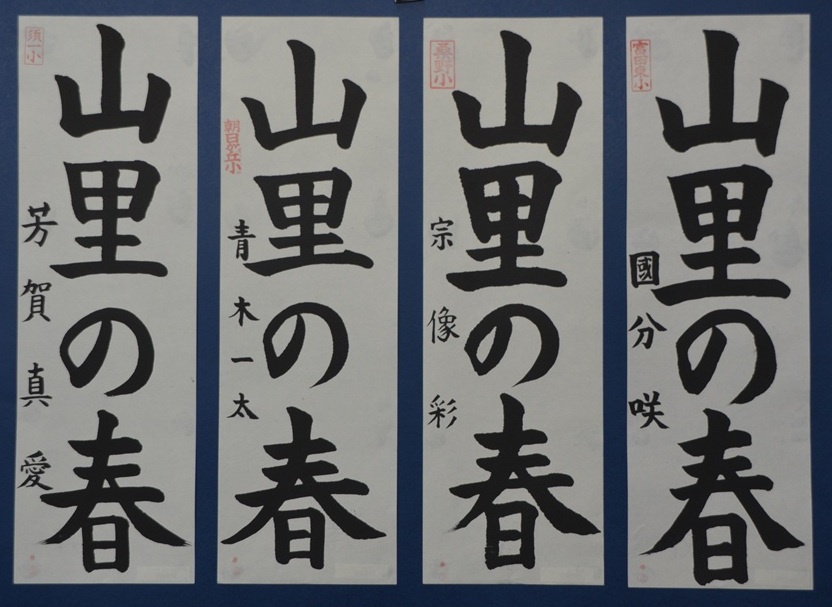 山里の春
芳賀真愛
須一小
山里の春
青木一太
山里の春
宗像彩
桑野小
山里の春
國分咲
富田東小